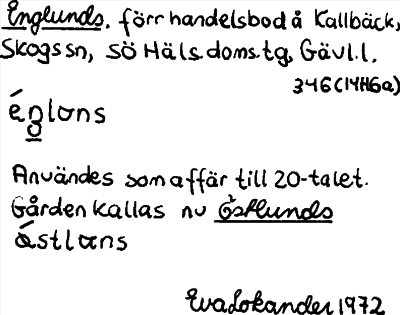 Englunds. förr handelsbod å Kallbäck,
Skogs sn, SÖ Häls. doms.tg, Gävl.l.
346(14H6a)
Användes som affär till 20-talet.
Gården kallas nu Östlunds
Eva Lokander 1972